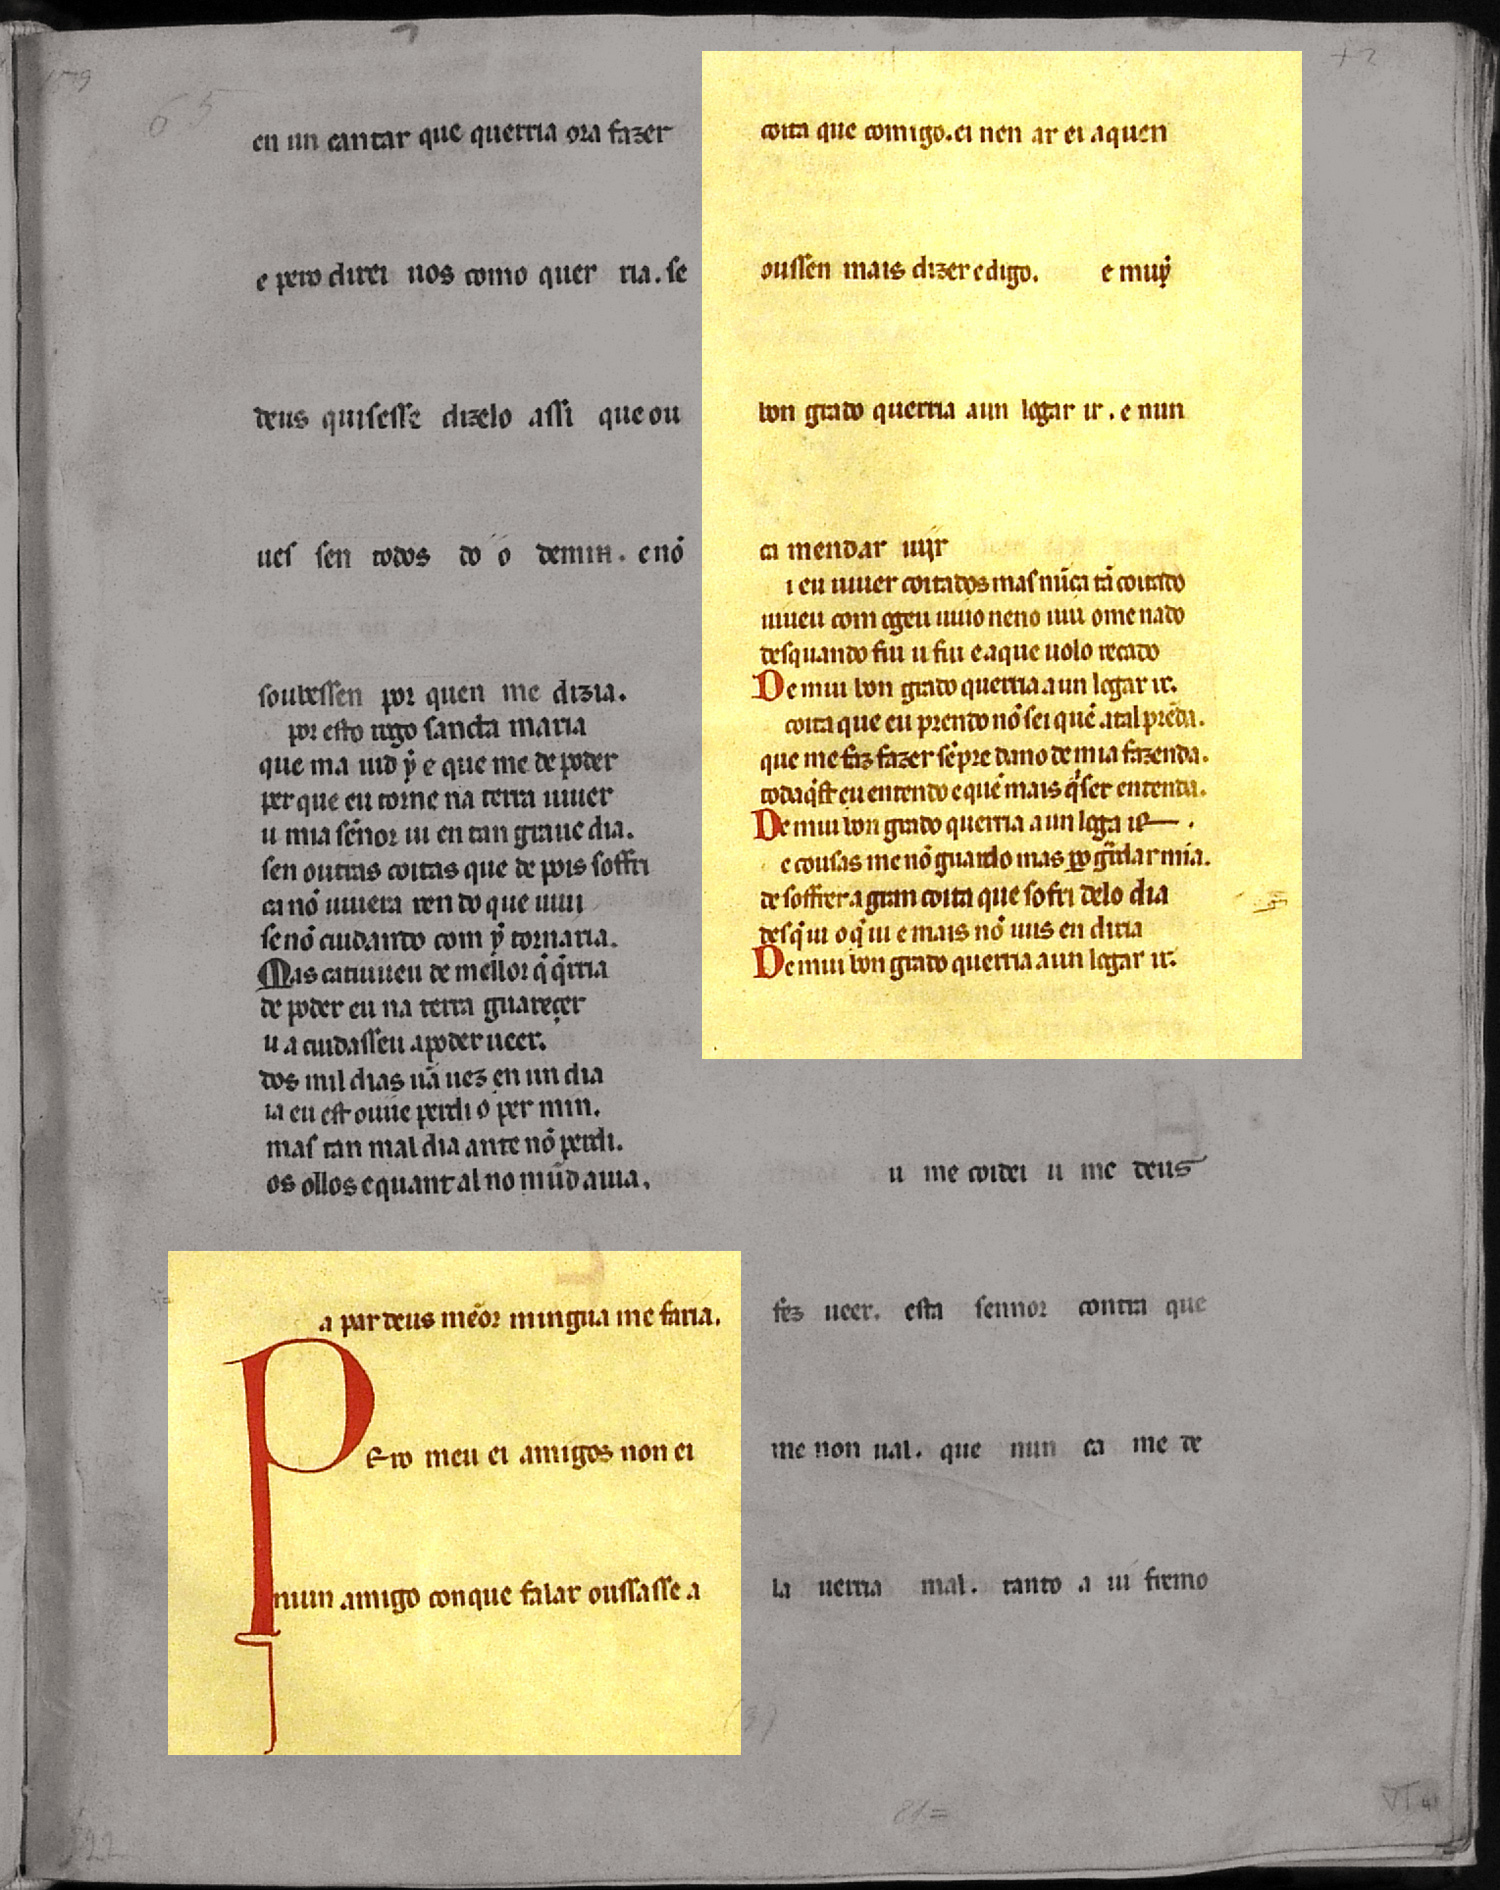 en un cantar que querria ora fazer
e pero direi uos como quer ria. se
deus quisesse dizelo assi que ou
ues sen todos do o demin. e nõ
soubessen por quen me dizia.
por esto rogo sancta maria
que ma uid y e que me de poder
per que eu torne na terra uiuer
u mia sẽnor ui en tan graue dia.
sen outras coitas que de pois soffri
ca nõ uiuera ren do que uiui
se nõ cuidando com y tornaria.
Mas catiuueu de mellor q̃ q̃rria
de poder eu na terra guareçer
u a cuidasseu a poder ueer.
dos mil dias uã uez en un dia
ia eu est ouue perdi o per min.
mas tan mal dia ante nõ perdi.
os ollos e quant al no mũd auia.
a par deus mẽor mingua me faria.
Pero meu ei amigos non ei
niun amigo con que falar oussasse a
coita que comigo. ei nen ar ei a quen
oussen mais dizer e digo. e muy
bon grado querria a un logar ir. e nun
ca mendar uijr
i eu uiuer coitados mas nũca tã coitado
uiueu com ogeu uiuo neno uiu ome nado
des quando fui u fui e a que uolo recado
De mui bon grado querria a un logar ir.
coita que eu prendo nõ sei quẽ atal prẽda.
que me faz fazer sẽpre dano de mia fazenda.
tod aq̃st eu entendo e quẽ mais q̃ser entenda.
De mui bon grado querria a un loga ir .
e cousas me nõ guardo mas
de soffrer a gran coita que sofri delo dia
des q̃ ui o q̃ ui e mais nõ uus en diria
De mui bon grado querria a un logar ir.
u me coidei u me deus
fez ueer. esta sennor contra que
me non ual. que nun ca me de
la uerria mal. tanto a ui fremo